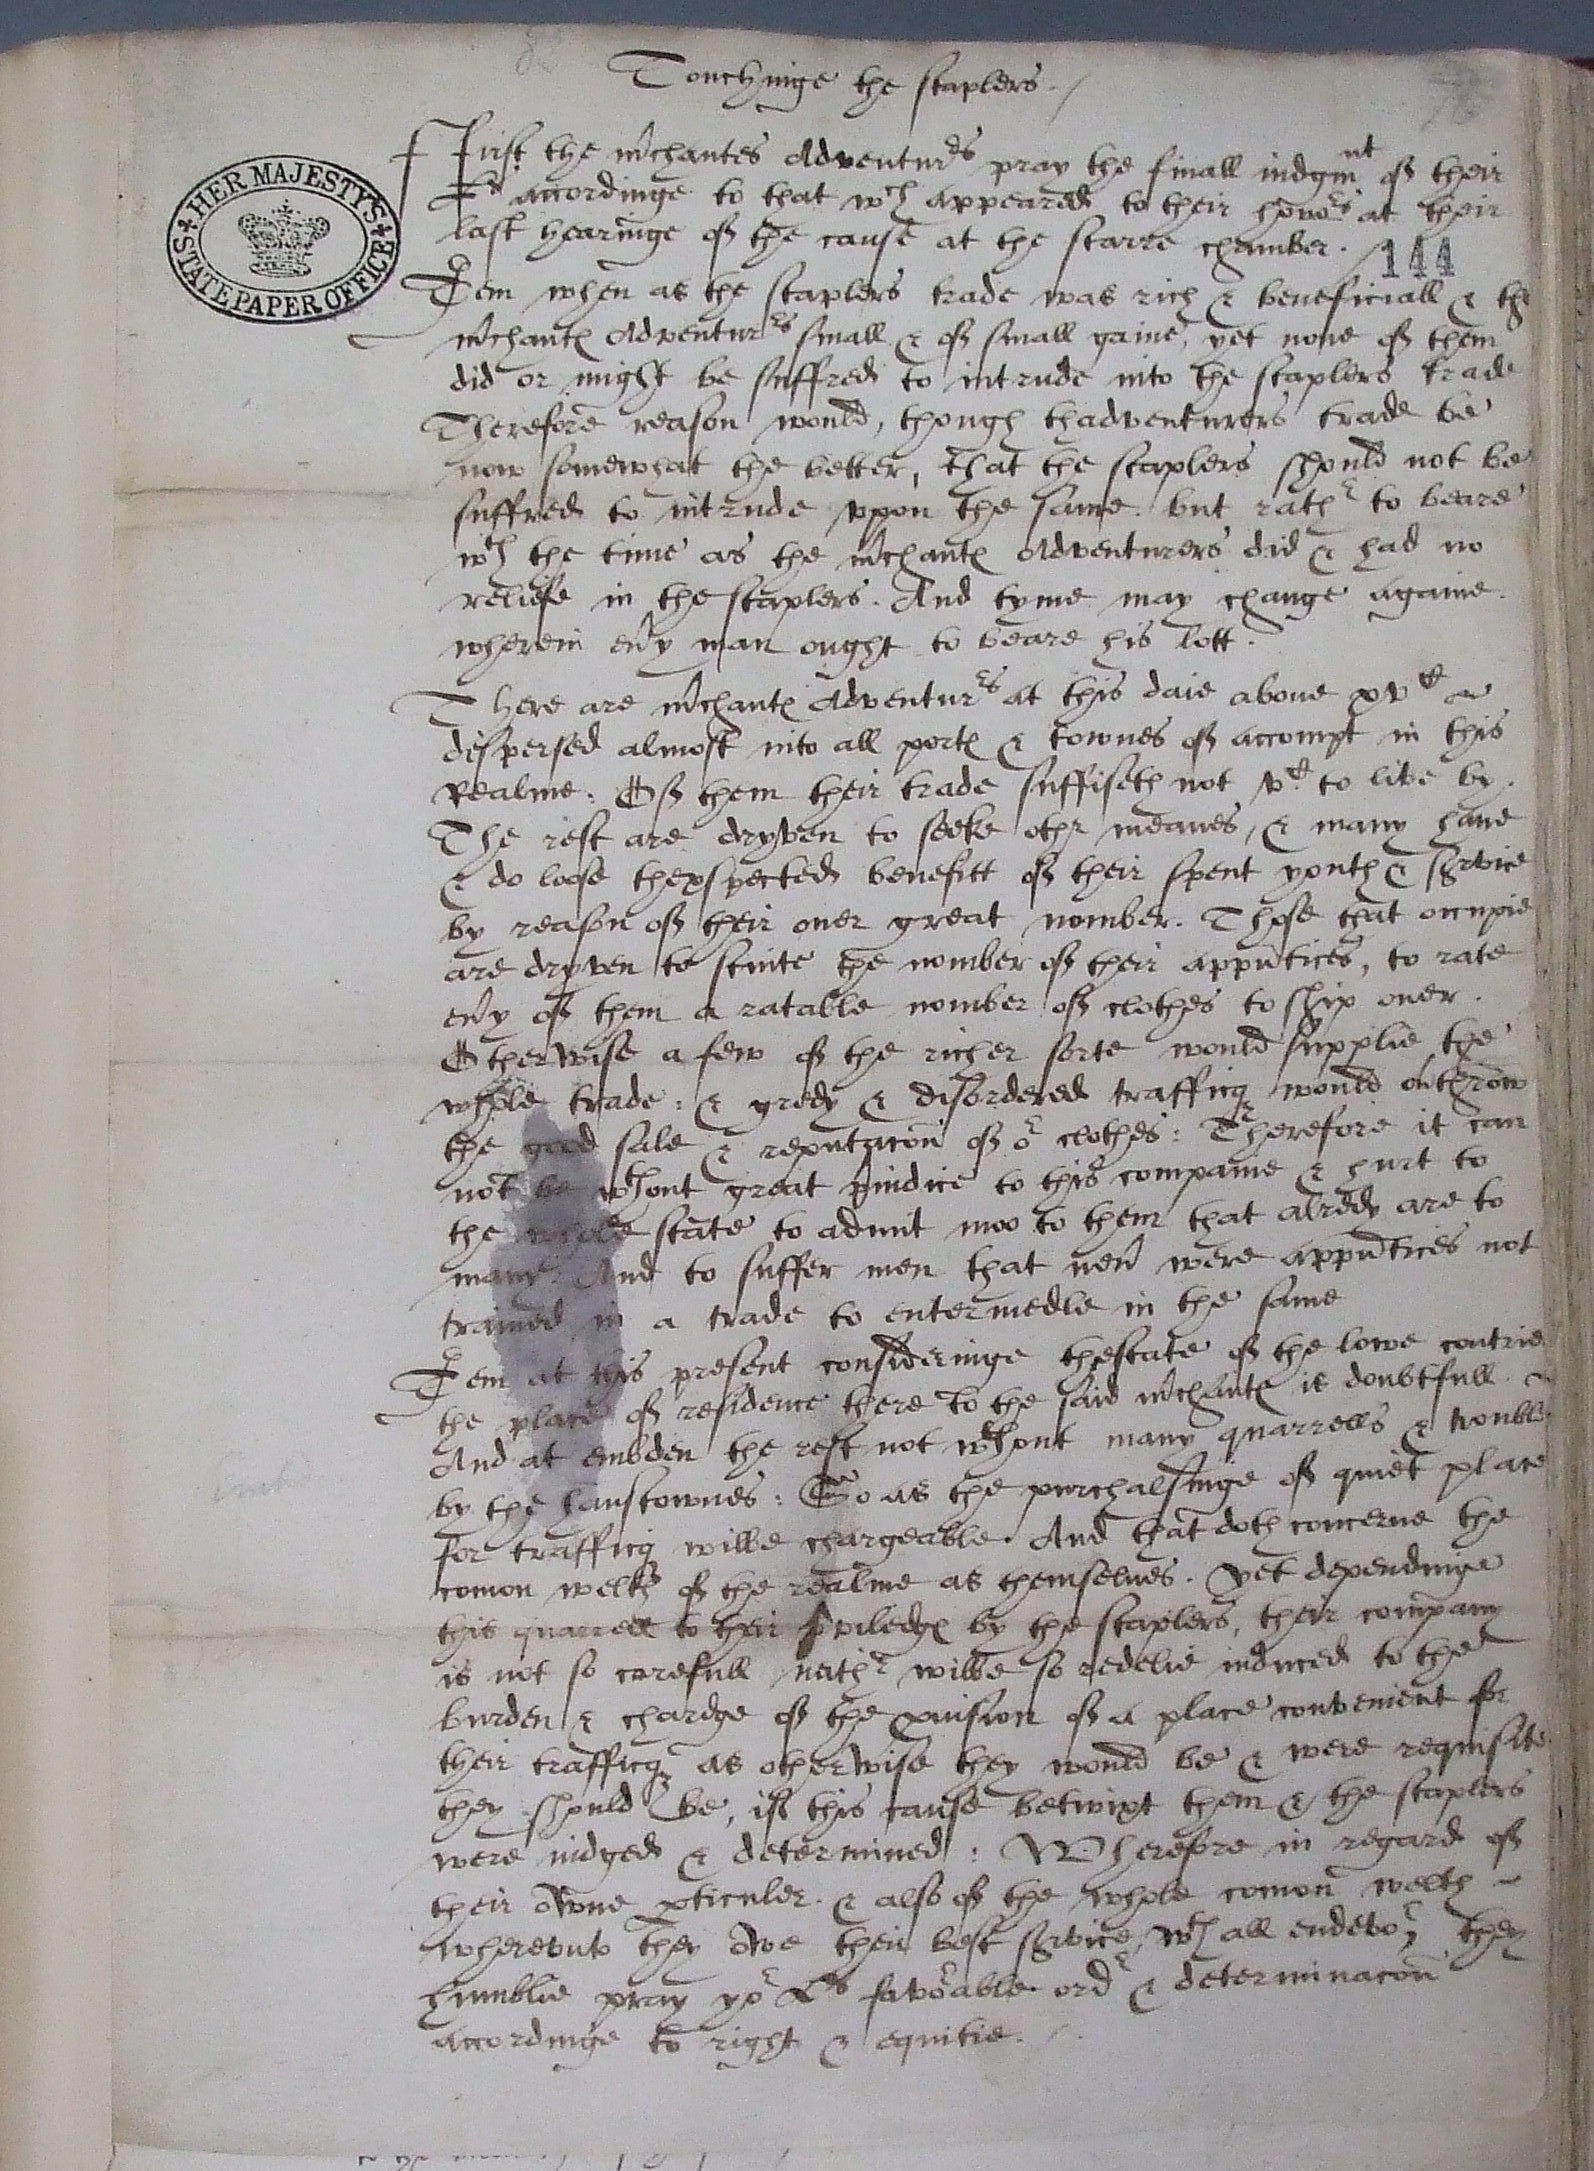 Touchinge the staplers.
HER MAJESTY'S
STATE PAPER OFFICE
First the m̃chantes Adventurers pray the finall iudgmnt of their
Lls accordinge to that wch appeared to their honors at their
last hearinge of the cause at the starre chamber.
144
Item when as the staplers trade was rich & beneficiall & the
m̃chantes Adventurers small & of small gaine, yet none of them
did or might be suffred to intrude into the staplers trade
Therefore reason would, though thadventurers trade be
now somewhat the better, that the staplers should not be
suffred to intrude vpon the same. but rathr to beare
wth the time as the m̃chantes Adventurers did & had no
reliefe in the staplers. And tyme may change againe.
wherein eũy man ought to beare his lott.
There are m̃chantes Adventurers at this daie aboue xvc
dispersed almost into all portes & townes of accompt in this
Realme: Of them their trade suffiseth not vc to live by.
The rest are dryven to seeke othr meanes, & many haue
& do loose thexspected benefitt of their spent youth & service
by reason of their ouer great nomber. Those that occupie
are dryven to stinte the nomber of their app̃ntices, to rate
eũy of them a ratable nomber of clothes to ship ouer.
Otherwise a few of the richer sorte would supplie the
whole trade: & gredy & disordered trafficq would oũthrow
the good sale & reputac̃on of or clothes: Therefore it can
not be wthout great p̱iudice to this companie & hurt to
the whole state to admit moo to them that alredy are to
many. And to suffer men that neũ were app̃ntices not
trained in a trade to entermedle in the same
Item at this present consideringe thestate of the lowe contries
the place of residence there to the said m̃chantes is doubtfull.
And at embden the rest not wthout many quarrells & troubles
by the hanstownes: So as the purchassinge of quiet place
for trafficq wilbe chargeable. And that doth concerne the
comon welth of the realme as themselues. Yet dependinge
this quarrell to their p̱viledges by the staplers, their company
is not so carefull neithr wilbe so redelie induced to the
burden & chardge of the p̱uision of a place convenient for
their trafficq as otherwise they would be & were requisite
they should be, if this cause betwixt them & the staplers
were iudged & determined: Wherefore in regard of
their owne p̱ticuler. & also of the whole comon welth
wherevnto they owe their best service, wth all endevor they
humblie pray yor Lls favorable ordr & determinac̃on
accordinge to right & equitie.